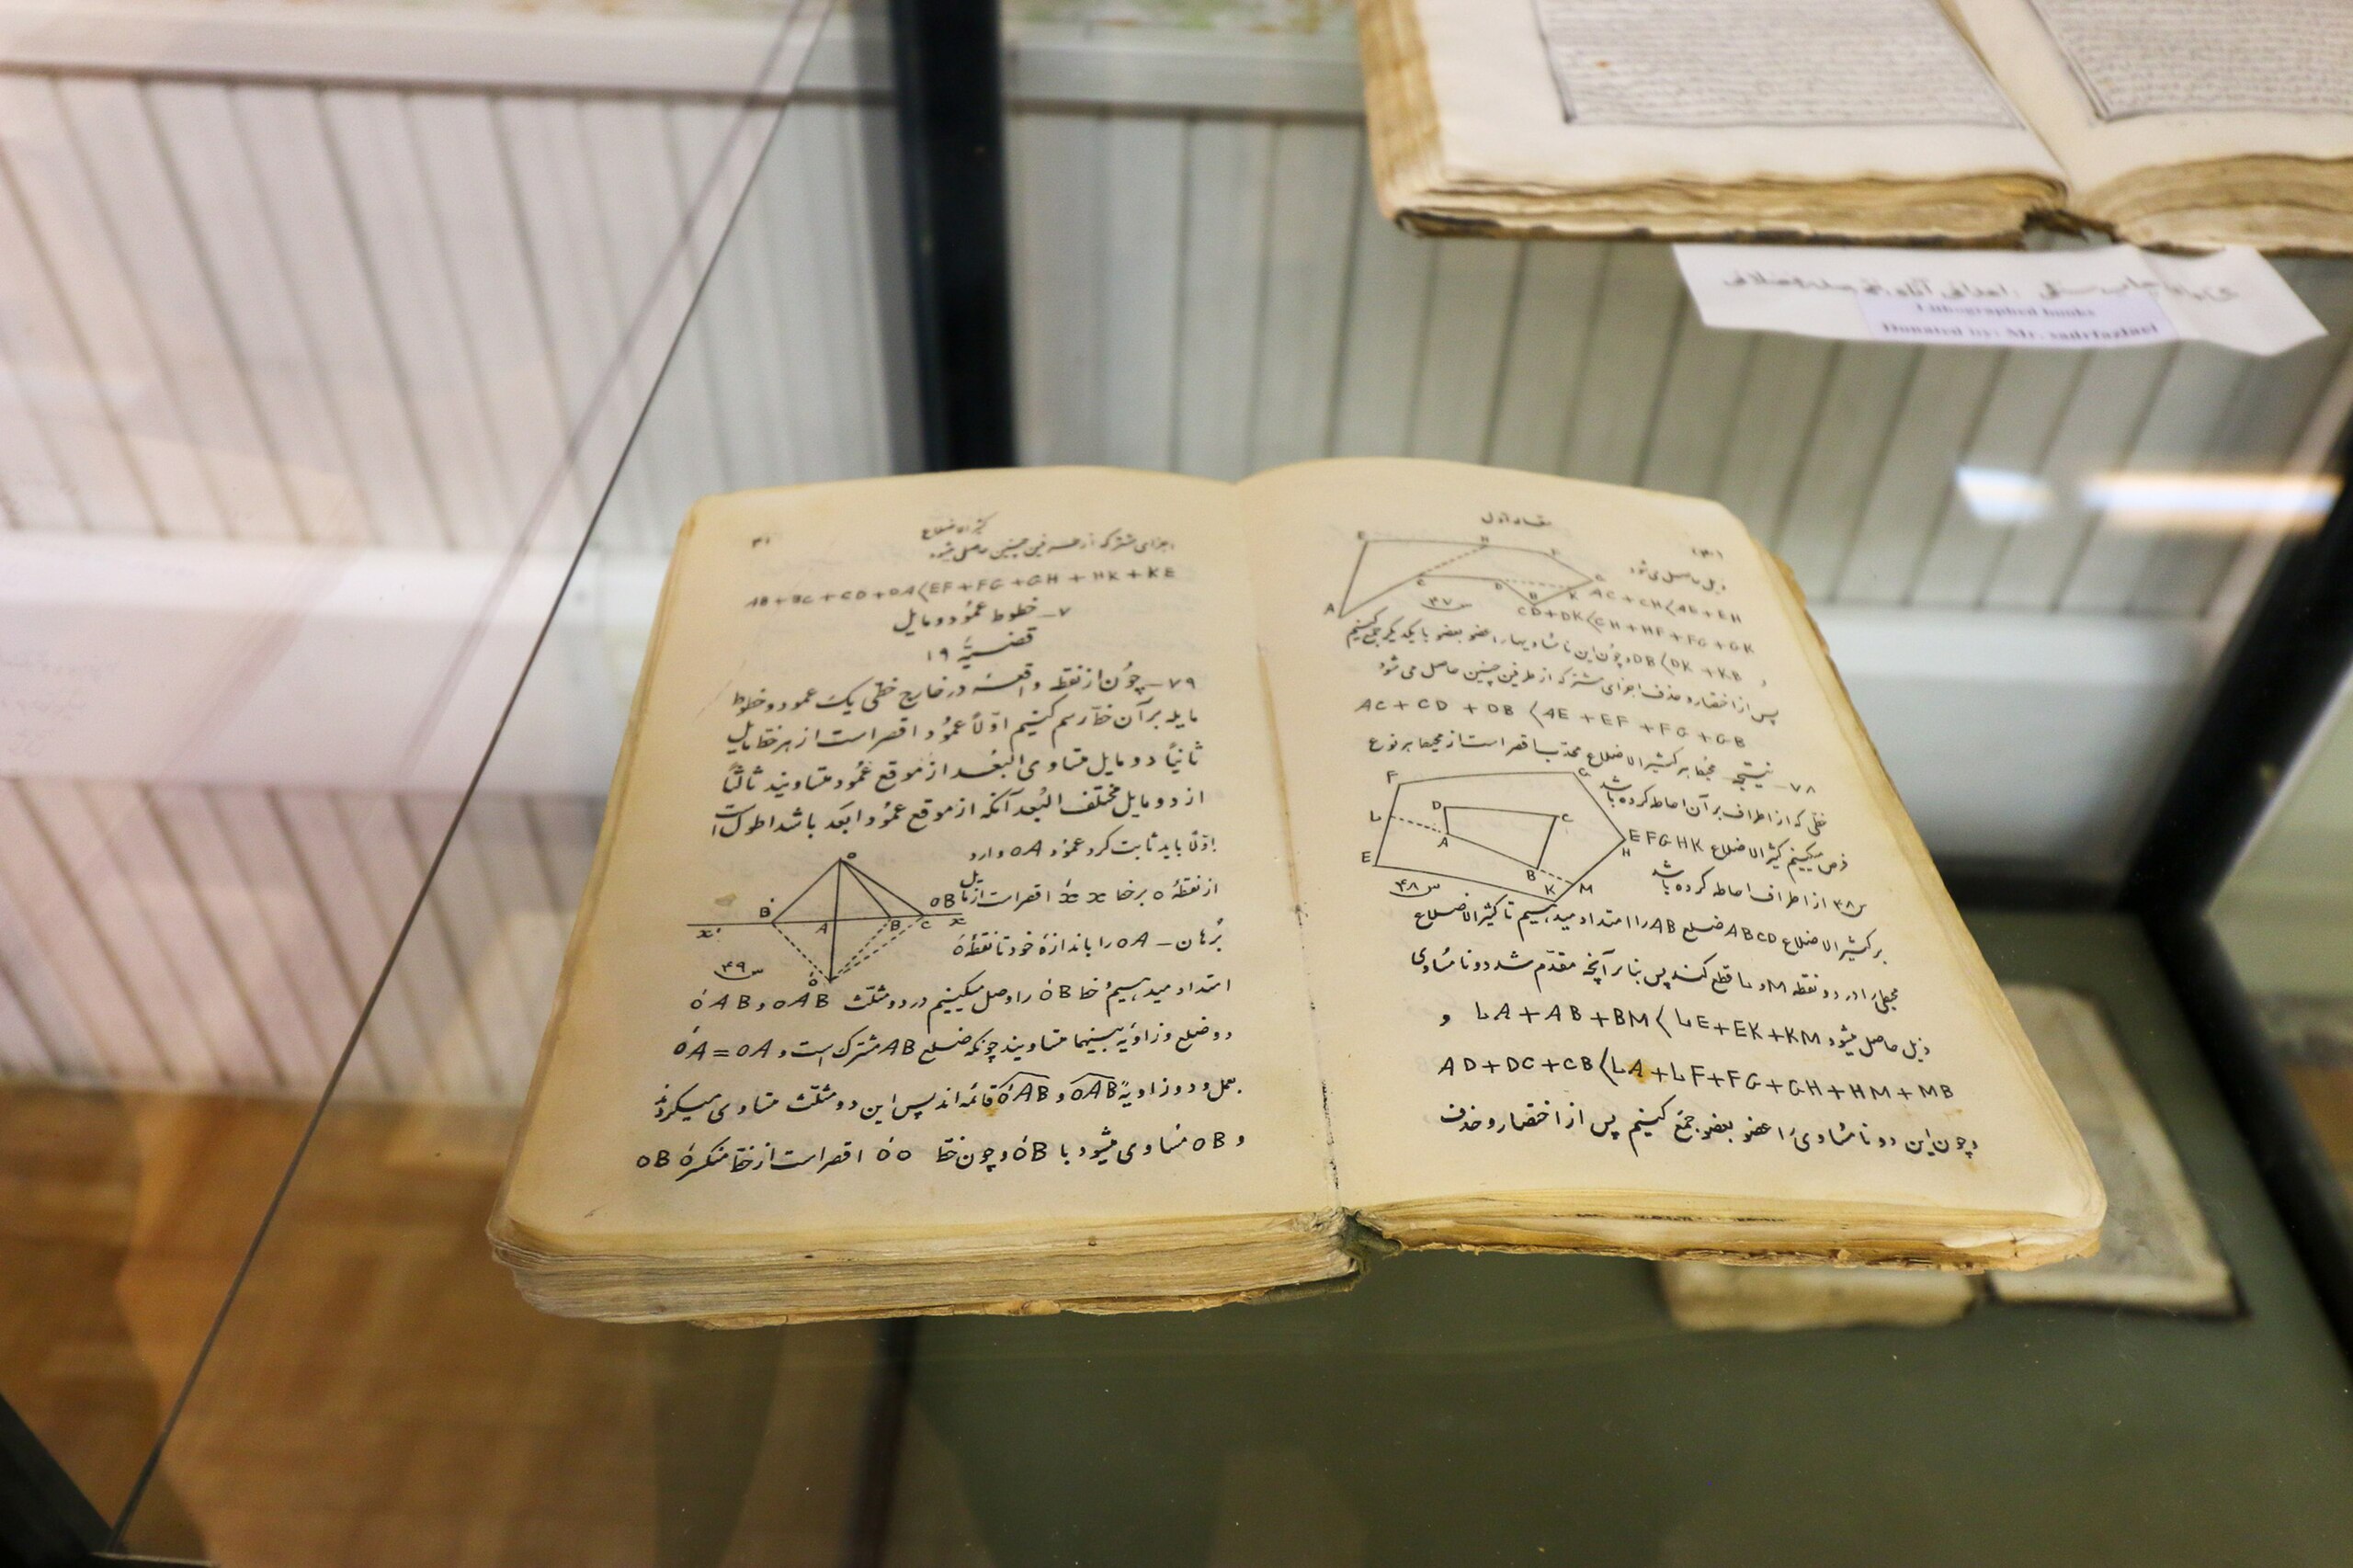 مقاله اول
ذیل حاصل می شود
AC + CH < AE + EH
CD + DK < CH + HF + FG + GK
DB < DK + KB و چون این نامتساویها را عضو بعضو با یکدیگر جمع کنیم
پس از اختصار و حذف اجزای مشترکه از طرفین چنین حاصل می شود
AC + CD + DB < AE + EF + FG + GB
۷۸ـ نتیجه محیط هر کثیر الاضلاع محدب اقصر است از محیط هر نوع
خطی که از اطراف بر آن احاطه کرده باشد
فرض میکنیم کثیر الاضلاع EFGHK
س۴۸ از اطراف احاطه کرده باشد
بر کثیر الاضلاع ABCD ضلع AB را امتداد میدهیم تا کثیر الاضلاع
محیطی را در دو نقطه M و L قطع کند پس بنابر آنچه مقدم شد دو نامساوی
ذیل حاصل میشود LA + AB + BM < LE + EK + KM و
AD + DC + CB < LA + LF + FG + GH + HM + MB
و چون این دو نامساوی را عضو بعضو جمع کنیم پس از اختصار و حذف
E H F G C D B K A
س۴۷
F G D C L A E B K M H
س۴۸
کثیر الاضلاع
۴۱
اجزای مشترکه از طرفین چنین حاصل میشود
AB + BC + CD + DA < EF + FG + GH + HK + KE
۷ـ خطوط عمود و مایل
قضیه ۱۹
۷۹ـ چون از نقطه واقعه در خارج خطی یک عمود و خطوط
مایله بر آن خط رسم کنیم اولاً عمود اقصر است از هر خط مایل
ثانیاً دو مایل متساوی البعد از موقع عمود متساویند ثالثاً
از دو مایل مختلف البعد آنکه از موقع عمود ابعد باشد اطول است
اولاً باید ثابت کرد عمود OA وارد
از نقطه O بر خط x x́ اقصر است از مایل OB
برهان ـ OA را باندازه خود تا نقطه Ó
امتداد میدهیم و خط ÓB را وصل میکنیم در دو مثلث OAB و ÓAB
دو ضلع و زاویه بینهما متساویند چونکه ضلع AB مشترک است و ÓA = OA
بعمل و دو زاویه OAB و ÓAB قائمه اند پس این دو مثلث متساوی میگردند
و OB مساوی میشود با ÓB و چون خط OÓ اقصر است از خط منکسره OB
O B́ A B C x x́ Ó
س۴۹
Lithographed books
Donated by: Mr. sadrfazlaei